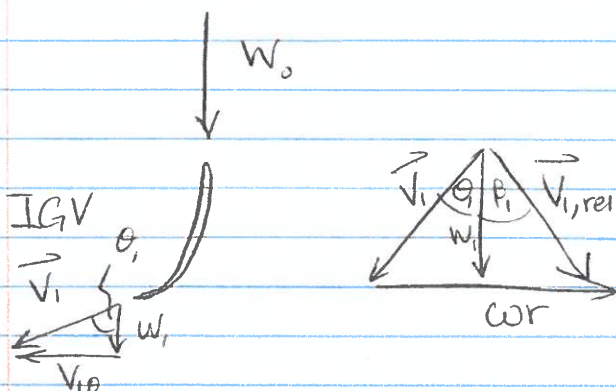 W₀
IGV
θ₁
V₁
W₁
V₁θ
V₁
θ₁
β₁
V₁,rel
W₁
ωr